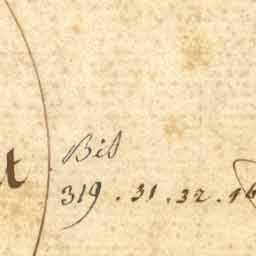 Bib
t 319 . 31 . 32 . 16